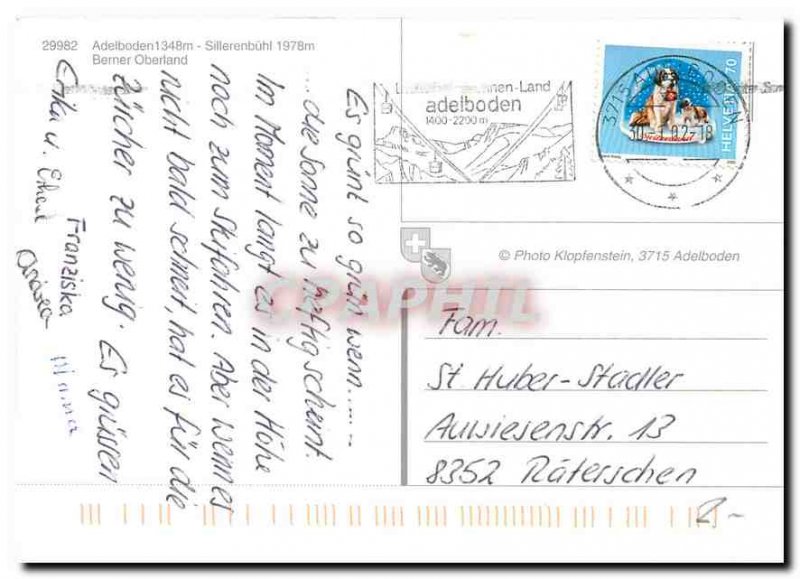 29982 Adelboden 1348m - Sillerenbühl 1978m
Berner Oberland
Es grünt so grün wenn.....--
...die Sonne zu häftig scheint.
Im Moment langt es in der Höhe
noch zum Skifahren. Aber wenn es
nicht bald schneit, hat es für die
Zürcher zu wenig. Es grüssen
Erika u.
Franziska
Andrea
Diana
adelboden
1400-2200 m
HELVETIA 70
© Photo Klopfenstein, 3715 Adelboden
CPAPHIL
Fam.
St. Huber-Stadler
Auwiesenstr. 13
8352 Räterschen
2.-